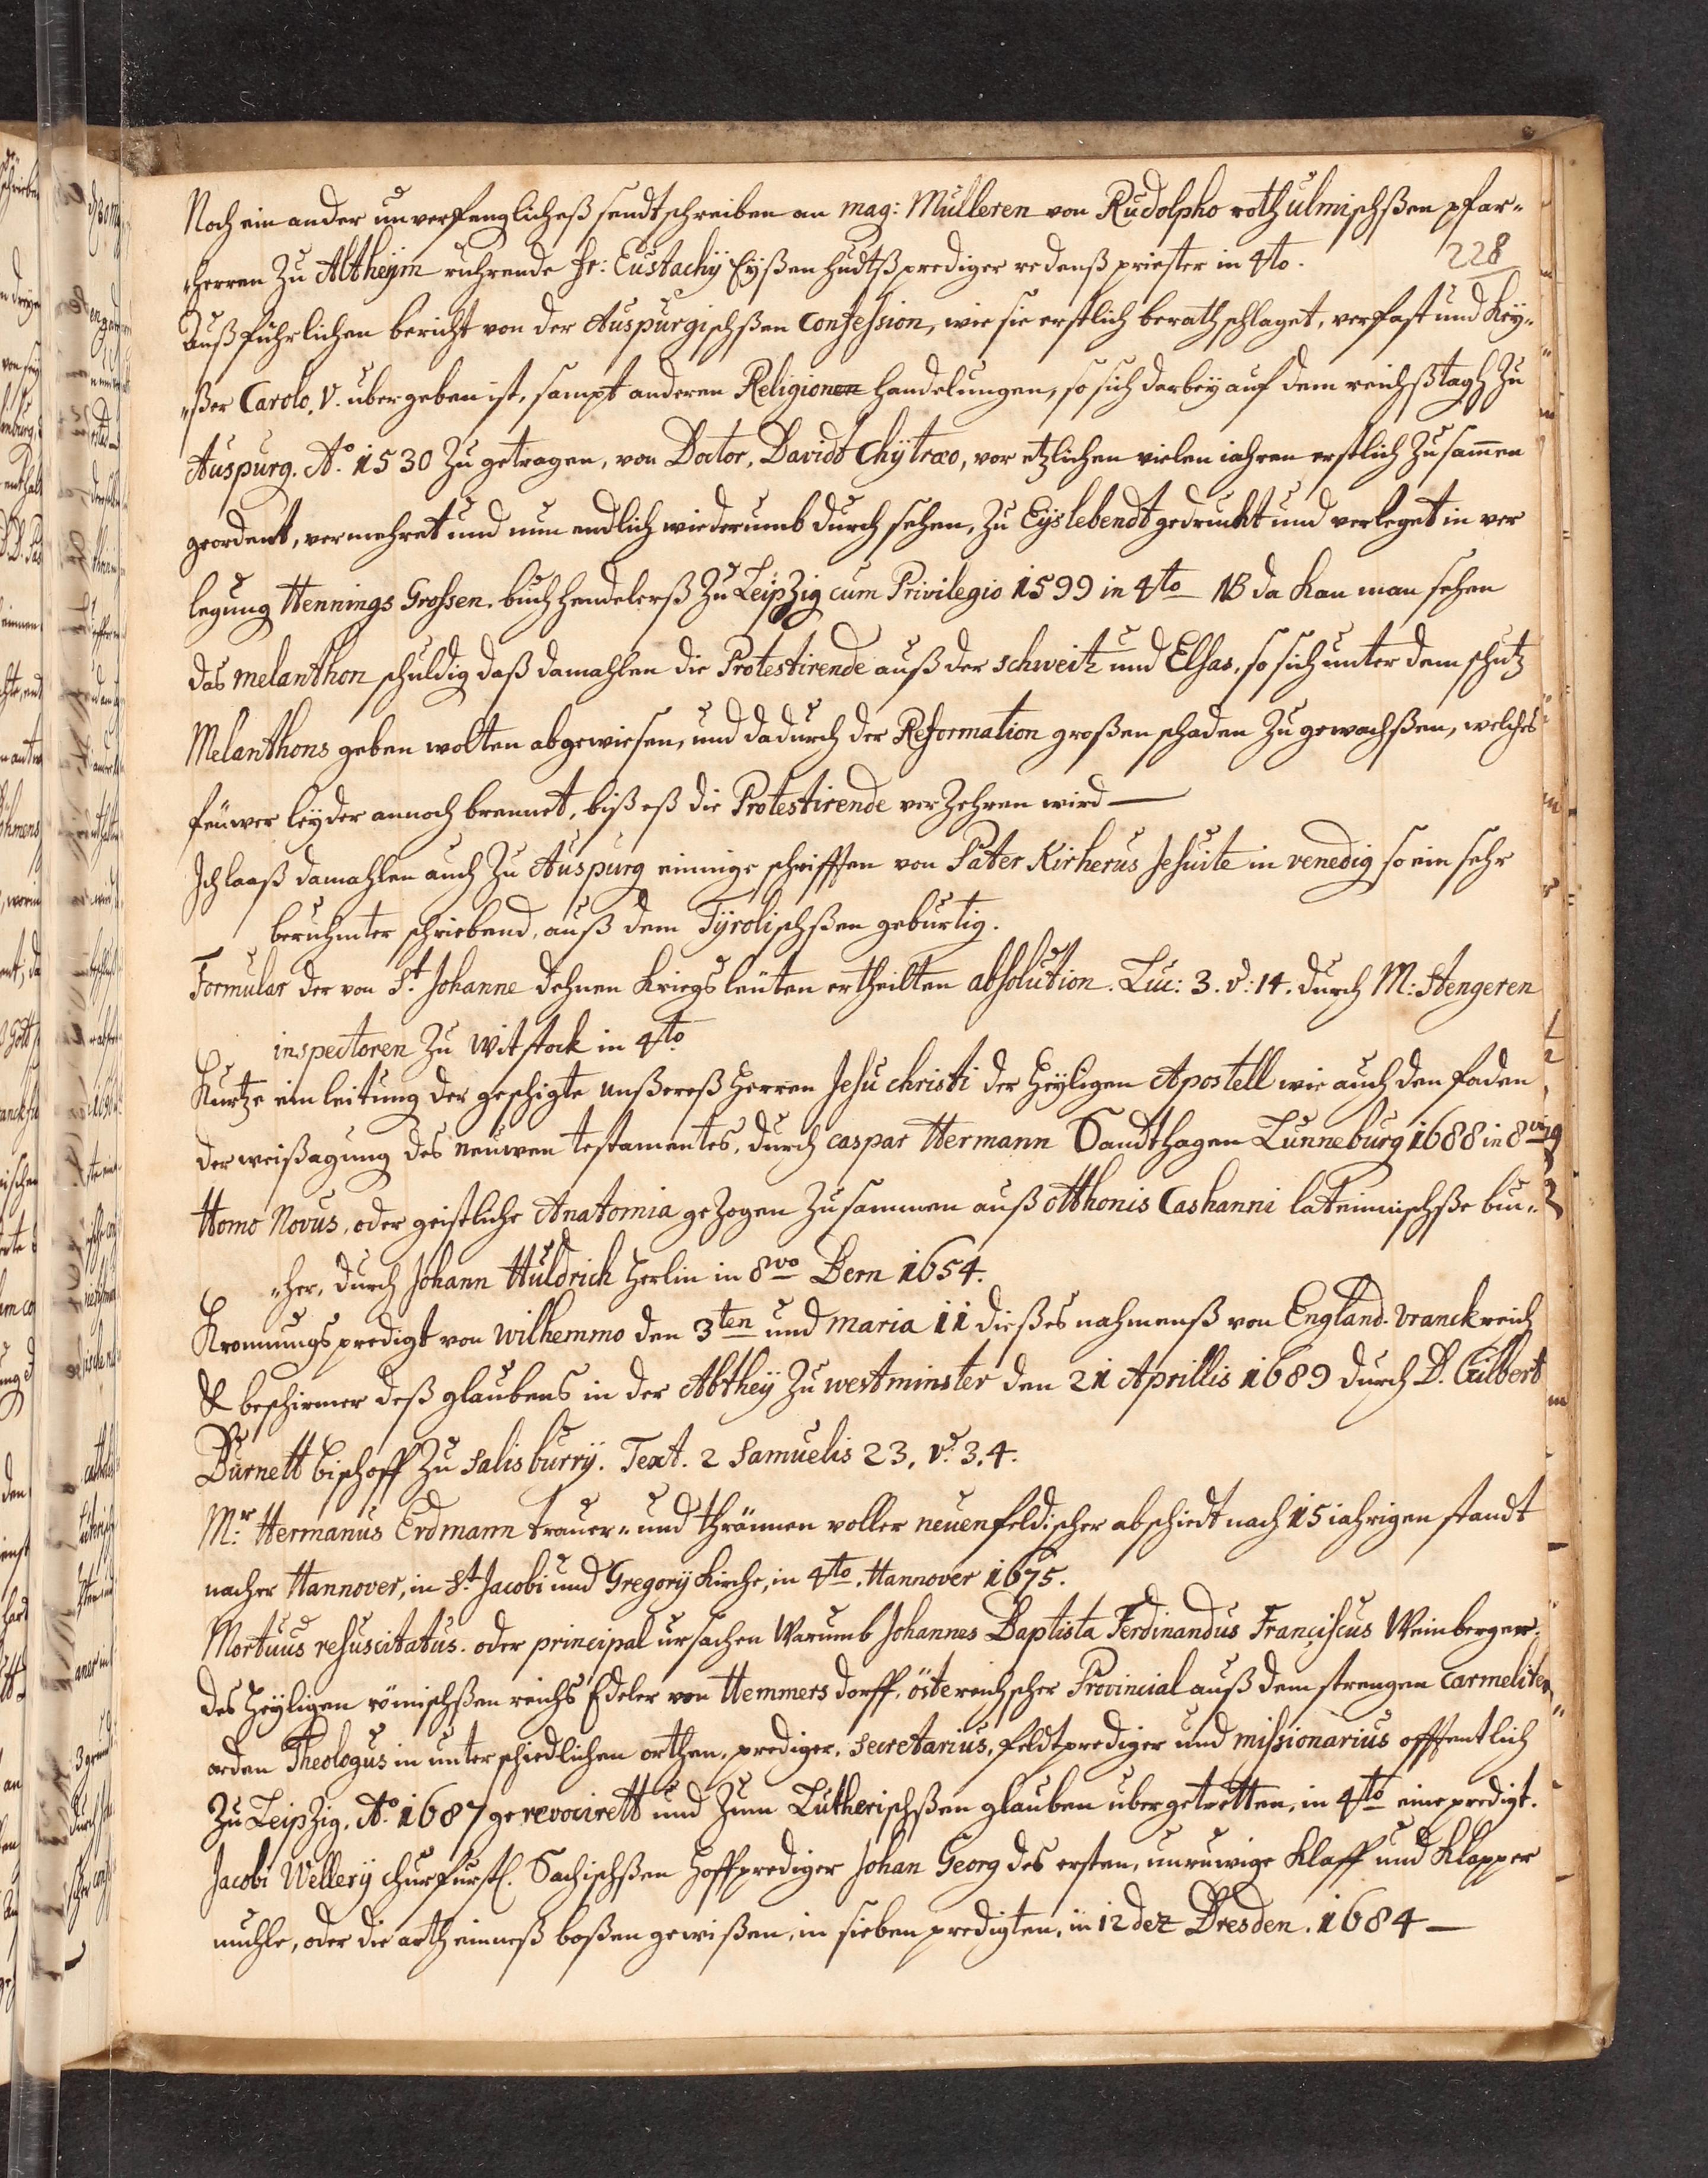 Noch ein ander unverfenglicheß sendtschreiben an mag: Mulleren von Rudolpho roth ulmischßen pfar-
herren Zu Altheijm ruhrende hr: Eustachÿ Eyßen hudtß prediger redenß priester in 4to.
228
Außführlichen bericht von der Auspurgischßen Confession, wie sie erstlich berathschlaget, verfast und Keÿ-
ßer Carolo. V. ubergeben ist, sampt anderen Religionen handelungen, so sich darbeÿ auf dem reichßtagh Zu
Auspurg. Ao. 1530 Zu getragen, von Doctor. Davidt Chÿtræo, vor etzlichen vielen iahren erstlich Zusamen
geordent, vermehret und nun endlich wiederumb durch sehen, Zu Eijslebendt gedruckt und verleget in ver
legung Hennings Grossen. buchhendelerß Zu LeipZig cum Privilegio 1599 in 4to NB da kan man sehen
das melanthon schuldig daß damahlen die Protestirende auß der schweitz und Elsas, so sich unter dem schutz
Melanthons geben wolten abgewiesen, und dadurch der Reformation großen schaden Zu gewachßen, welches
feuwer leÿder annoch brennet, biß eß die Protestirende verZehren wird —
Ich laaß damahlen auch Zu Auspurg einnige schrifften von Pater Kirherus Jesuite in venedig so ein sehr
beruhmter schriebend, auß dem Tÿrolischßen geburtig.
Formular der von St. Johanne dehnen Kriegsleuten ertheilten absolution. Luc: 3. v: 14. durch M: Stengeren
inspectoren Zu witstock in 4to
Kurtze einleitung der geschigte unßereß Herren Jesu christi der Heÿligen Apostell wie auch den faden
der weißagung des neuwen testamentes, durch caspar Hermann Sandthagen Lunneburg 1688 in 8vo
Homo Novus, oder geistliche Anatomia geZogen Zusammen auß otthonis Cashanni lateinnischße bu-
cher, durch Johann Huldrich Herlin in 8vo Bern 1654.
Kronnungs predigt von wilhemmo den 3ten und maria ii dießes nahmenß von England. vranckreich
& beschirmer deß glaubens in der Abtheÿ Zu westminster den 21 Aprillis 1689 durch D. Gilbert
Burnett bischoff Zu Salisburrÿ. Text. 2 Samuelis 23. v: 3. 4.
Mr. Hermanus Erdmann trauer- und thrännen voller neuenfeldischer abschiedt nach 15 iahrigen standt
nacher Hannover, in St. Jacobi und Gregorÿ Kirche, in 4to. Hannover 1675.
Mortuus resuscitatus. oder principal ursachen Warumb Johannes Baptista Ferdinandus Franciscus Weinberger.
des Heÿligen römischßen reichs Edeler von Hemmersdorff, östereichscher Provincial auß dem strengen Carmeliter
orden Theologus in unterschiedlichen orthen, prediger, secretarius, feldtprediger und missionarius offentlich
Zu LeipZig. Ao. 1687 ge revocirett und Zum Lutherischßen glauben ubergetretten, in 4to eine predigt.
Jacobi Wellerÿ churfurstl. Sachischßen hoffprediger Johan Georg des ersten, unruwige Klaff und Klapper
muhle, oder die arth einneß boßen gewißen, in sieben predigten, in 12 dez Dresden. 1684 —